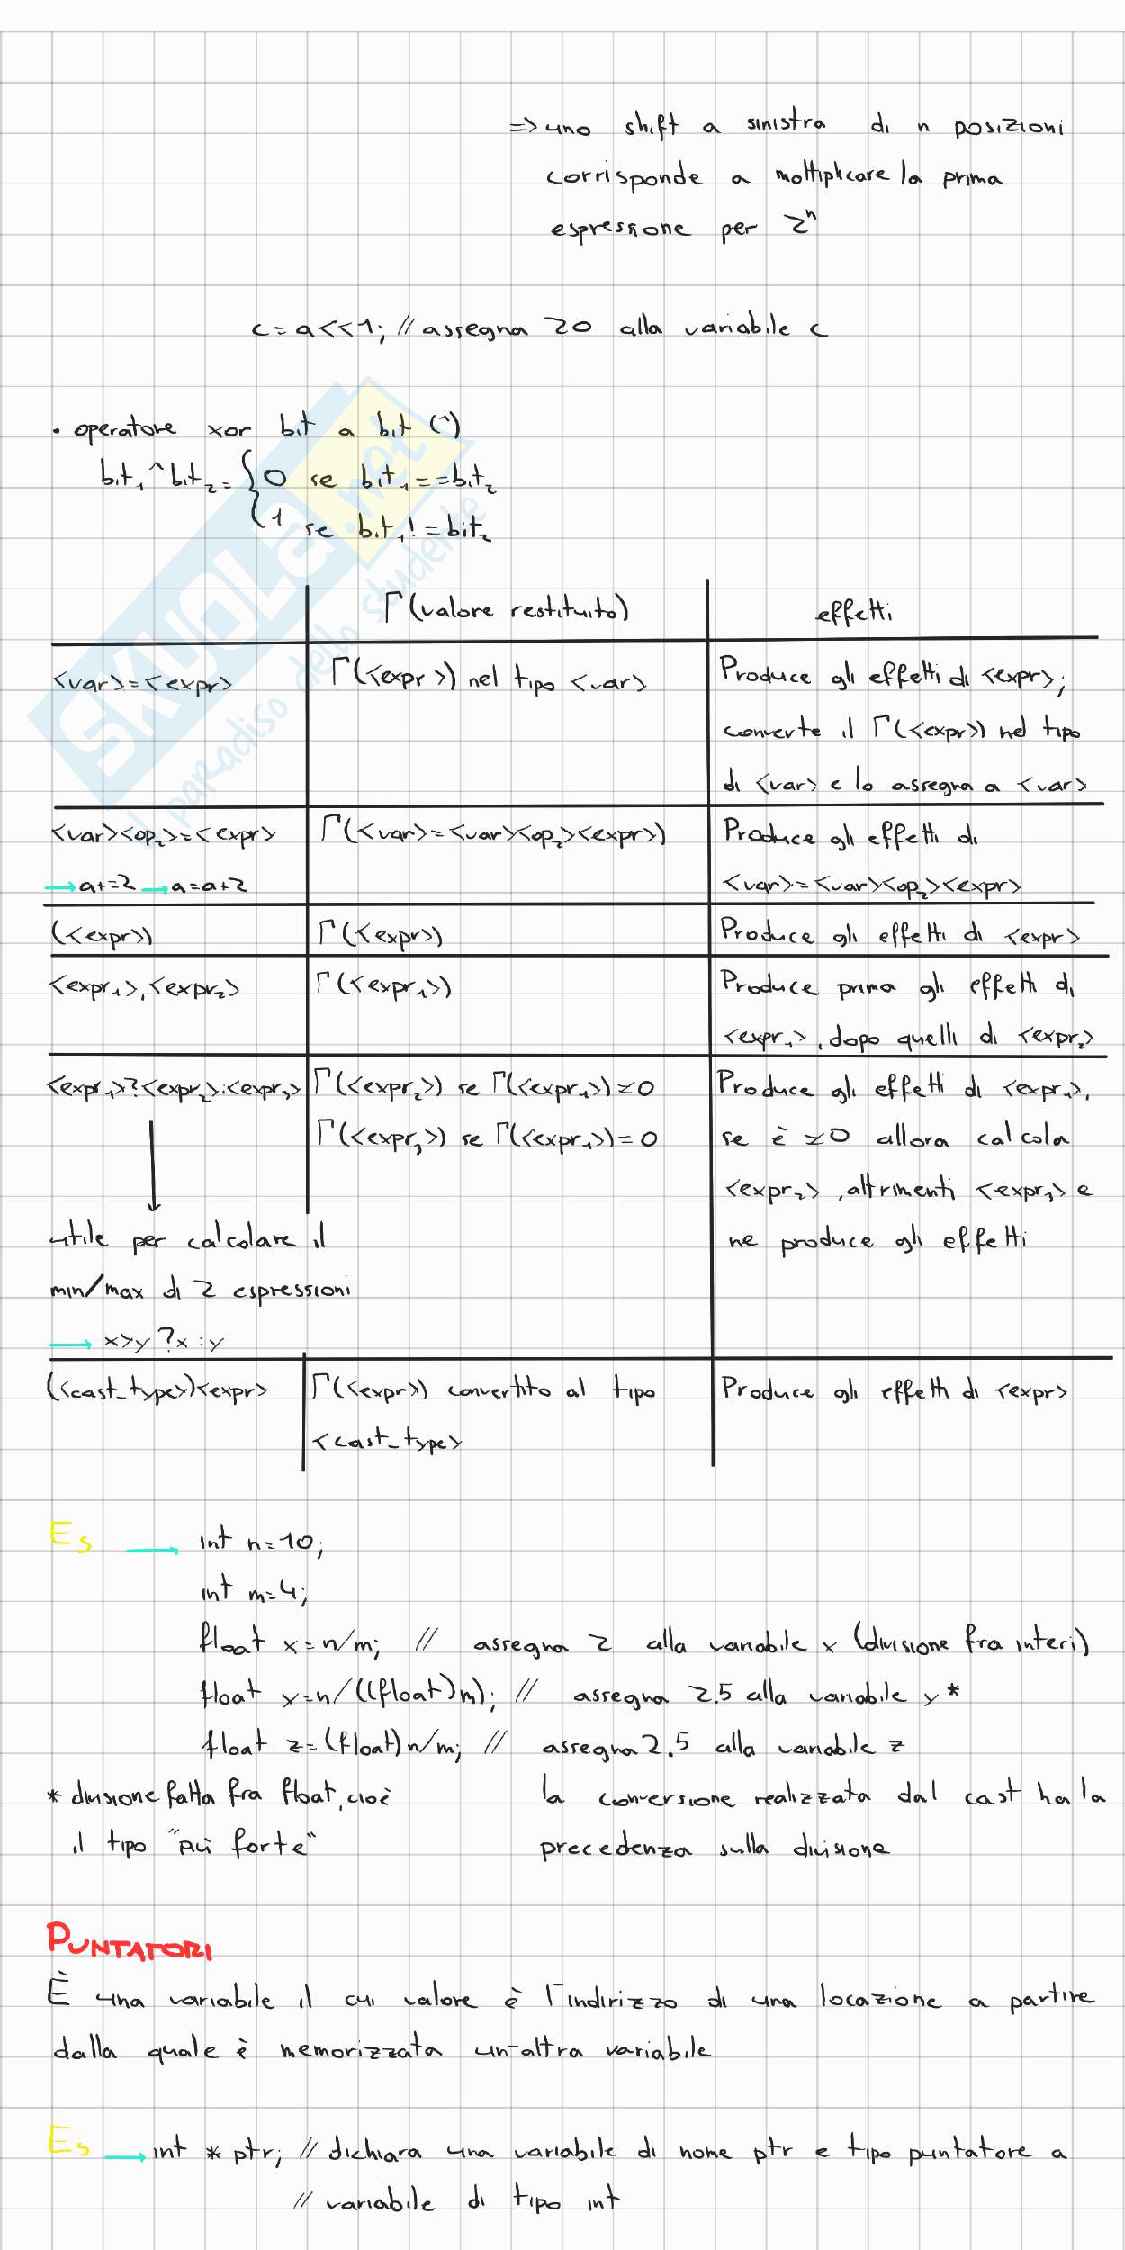 => uno shift a sinistra di n posizioni
corrisponde a moltiplicare la prima
espressione per 2ⁿ
c=a<<1; // assegna 20 alla variabile c
• operatore xor bit a bit (^)
bit₁^bit₂={0 se bit₁==bit₂
1 se bit₁!=bit₂
SKUOLA.net
il paradiso dello studente
Γ(valore restituito) effetti
<var>=<expr> Γ(<expr>) nel tipo <var> Produce gli effetti di <expr>;
converte il Γ(<expr>) nel tipo
di <var> e lo assegna a <var>
<var><op₂>=<expr> Γ(<var>=<var><op₂><expr>) Produce gli effetti di
→a+=2 →a=a+2 <var>=<var><op₂><expr>
(<expr>) Γ(<expr>) Produce gli effetti di <expr>
<expr₁>,<expr₂> Γ(<expr₁>) Produce prima gli effetti di
<expr₁>, dopo quelli di <expr₂>
<expr₁>?<expr₂>:<expr₃> Γ(<expr₂>) se Γ(<expr₁>)≠0 Produce gli effetti di <expr₁>,
Γ(<expr₃>) se Γ(<expr₁>)=0 se è ≠0 allora calcola
<expr₂>, altrimenti <expr₃> e
utile per calcolare il ne produce gli effetti
min/max di 2 espressioni
→ x>y ?x :y
(<cast_type>)<expr> Γ(<expr>) convertito al tipo Produce gli effetti di <expr>
<cast_type>
Es → int n=10;
int m=4;
float x=n/m; // assegna 2 alla variabile x (divisione fra interi)
float y=n/((float)m); // assegna 2.5 alla variabile y*
float z=(float)n/m; // assegna 2.5 alla variabile z
* divisione fatta fra float, cioè la conversione realizzata dal cast ha la
il tipo "più forte" precedenza sulla divisione
PUNTATORI
È una variabile il cui valore è l'indirizzo di una locazione a partire
dalla quale è memorizzata un'altra variabile
Es → int * ptr; // dichiara una variabile di nome ptr e tipo puntatore a
// variabile di tipo int